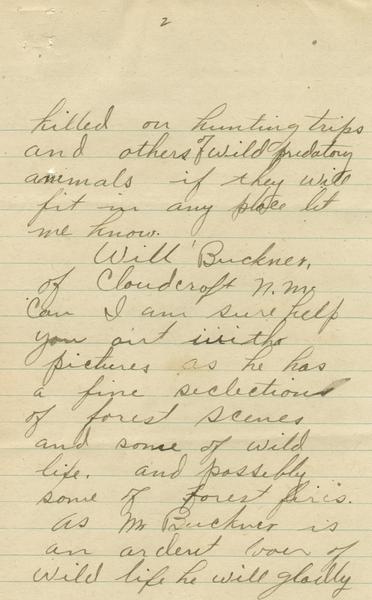 2
killed on hunting trips
and others of wild predatory
animals if they will
fit in any place let
me know.
Will Buckner,
of Cloudcroft N.M.
Can I am sure help
you out with
pictures as he has
a fine seclections
of forest scenes
and some of wild
life. and possebly
some of Forest fires.
As Mr Buckner is
an ardent lover of
wild life he will gladly